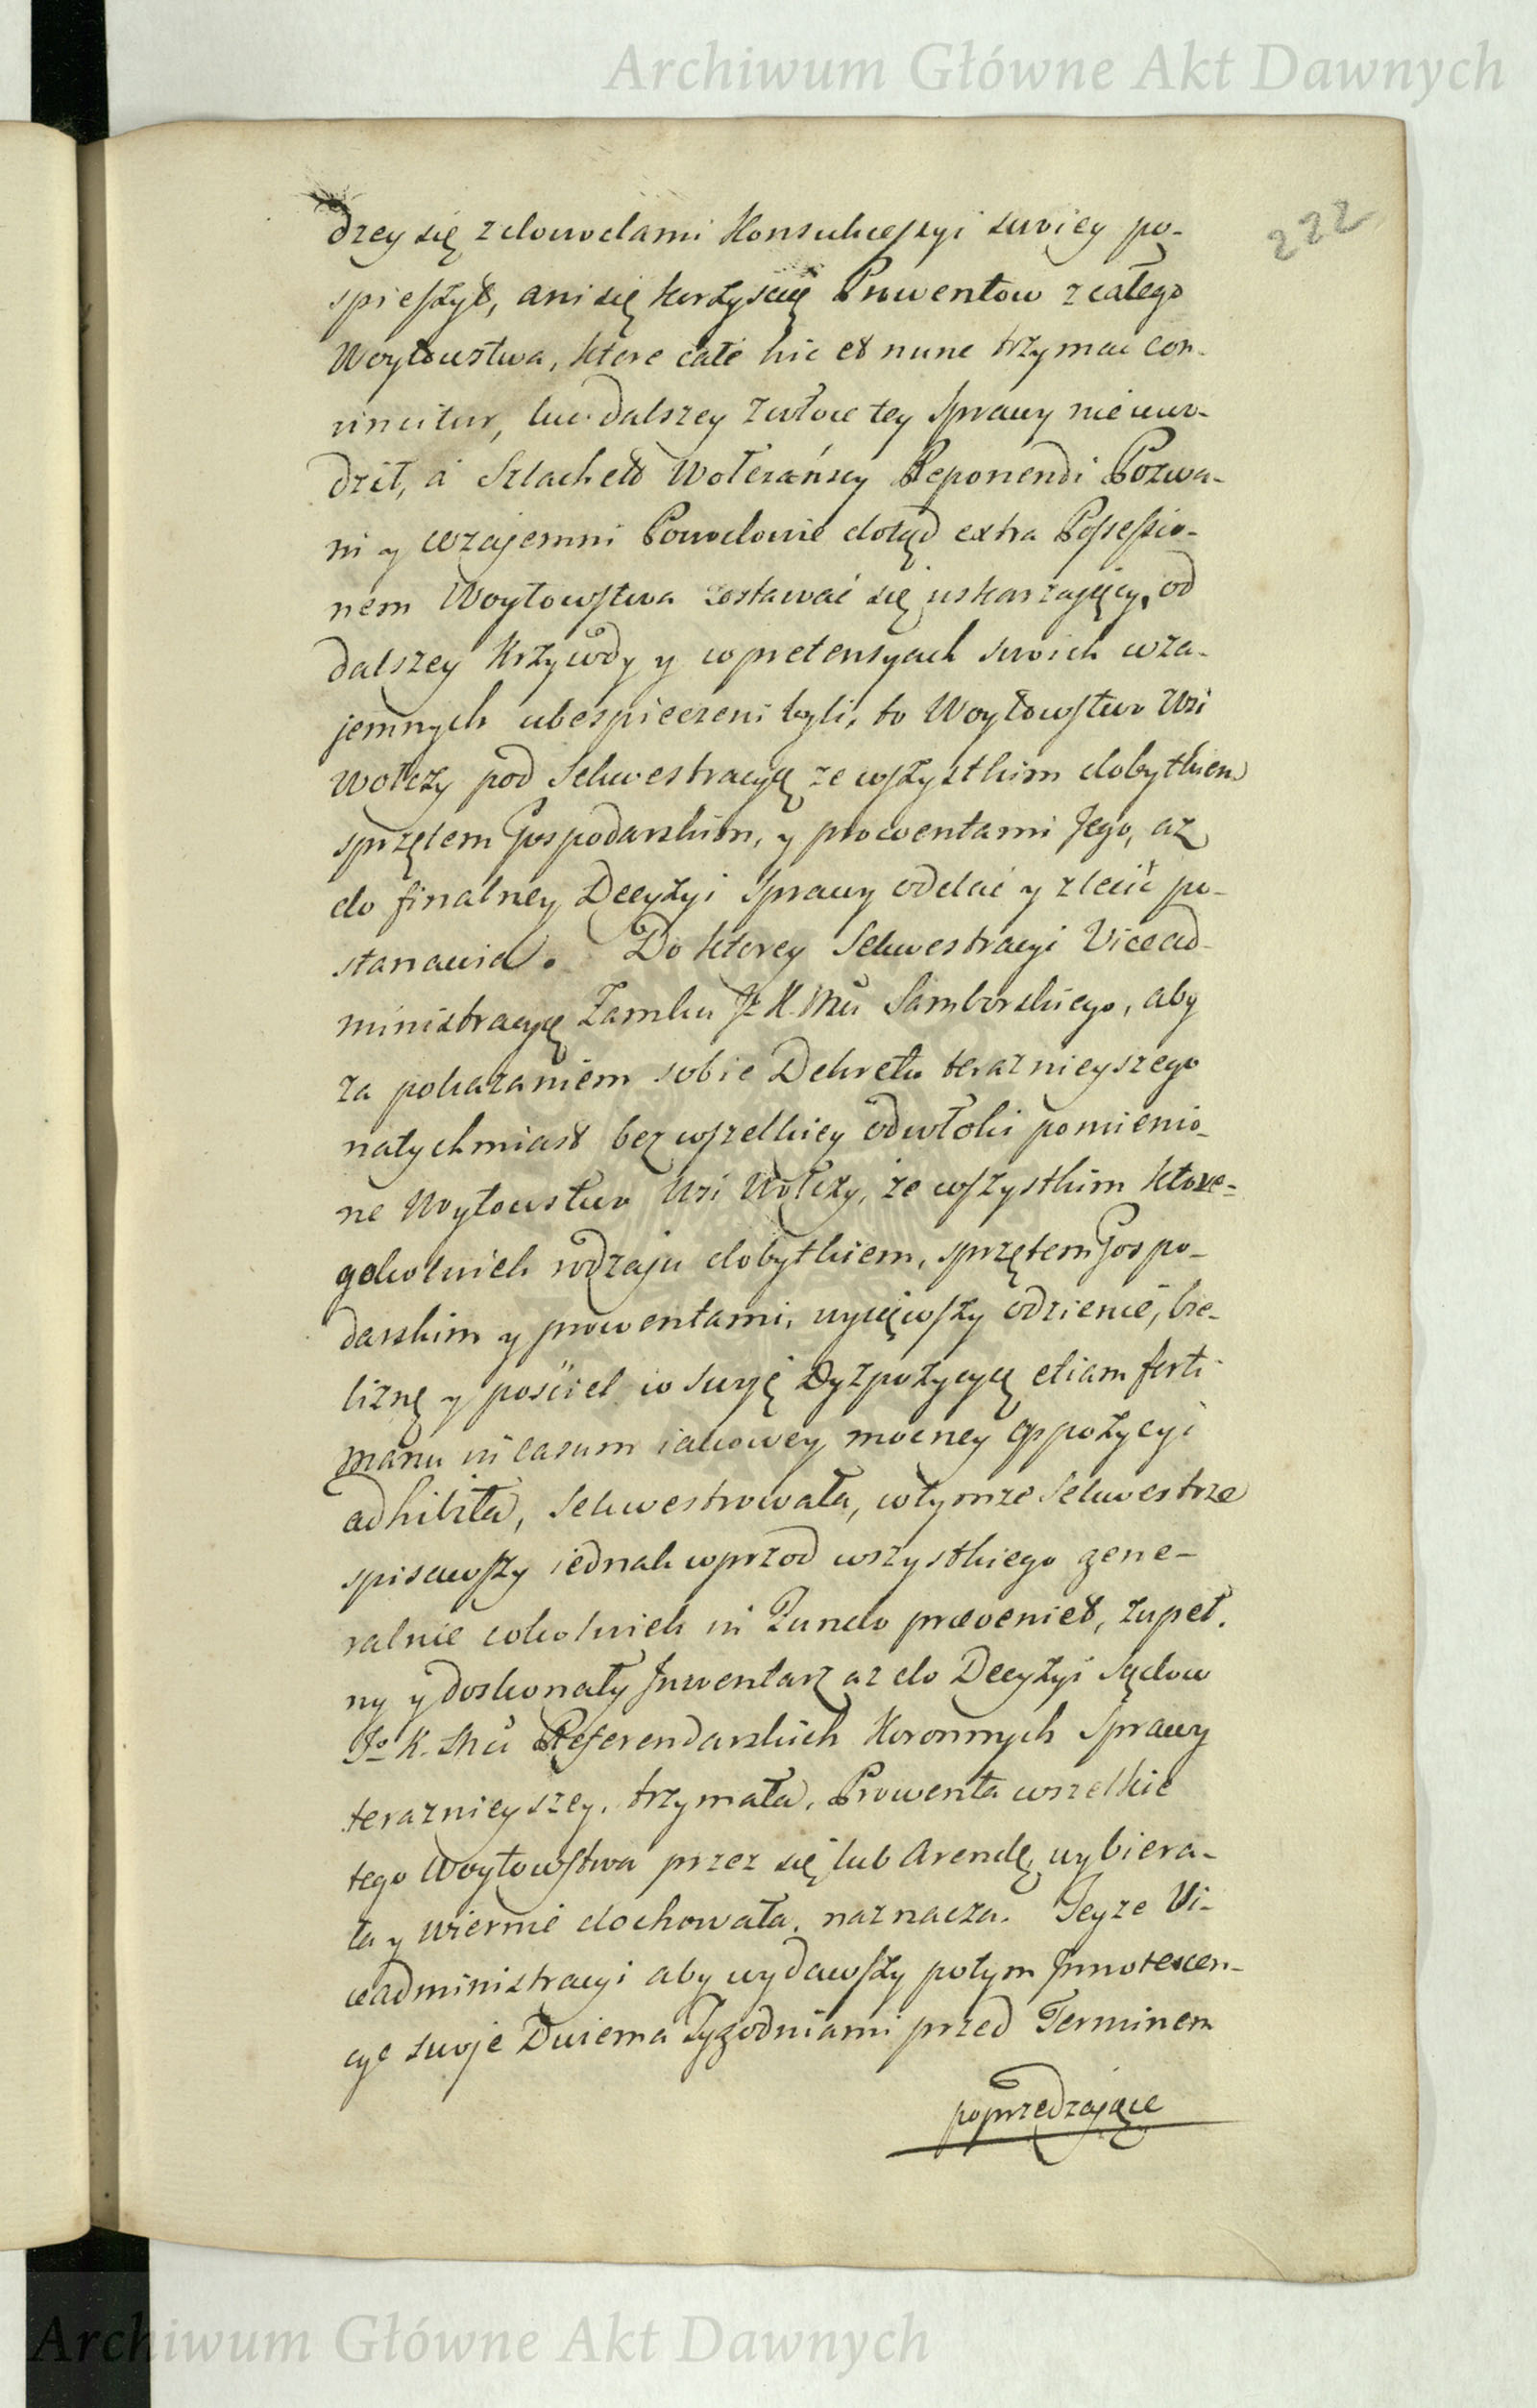 Archiwum Główne Akt Dawnych
222
dzey się z dowodami Konsukcessyi swoiey po-
spieszył, ani się korzyscię Prowentow z całego
Woytowstwa, ktore całe hic et nunc trzymać con-
vincitur, ku dalszey zwłoce tey sprawy nie uwo-
dził, a Szlachet Wołczańscy Reponendi Pozwa-
ni y wzajemni Powodowie dotąd extra Possessio-
nem Woytowstwa zostawać się uskarzaiący, od
dalszey Krzywdy y w pretensyach swoich wza-
jemnych ubespieczeni byli, to Woytowstwo Wsi
Wołczy pod Sekwestracyę ze wszystkim dobytkiem
sprzętem Gospodarskim, y prowentami Jego, az
do finalney Decyzyi sprawy oddać y zlecić po-
stanawia. Do ktorey Sekwestracyi Vicead-
ministracyę Zamku Jo K. Mci Samborskiego, aby
za pokazaniem sobie Dekretu teraznieyszego
natychmiast bez wszelkiey odwłoki pomienio-
ne Woytowstwo Wsi Wołczy, ze wszystkim ktore-
gokolwiek rodzaju dobytkiem, sprzętem Gospo-
darskim y prowentami, wyiąwszy odzienie, bie-
liznę y posciel w swoję Dyzpozycyę etiam forti
manu in casum iakowey mocney oppozycyi
adhibita, Sekwestrowała, w tymze Sekwestrze
spisawszy iednak wprzod wszystkiego gene-
ralnie cokolwiek in Fundo praeveniet, zupeł.
ny y doskonały Inwentarz az do Decyzyi Sądow
Jo K. Mci Referendarskich Koronnych Sprawy
teraznieyszey, trzymała, Prowenta wszelkie
tego Woytowstwa przez się lub Arendę, wybiera-
ła y wiernie dochowała, naznacza. Teyze Vi-
ceadministracyi aby wydawszy potym Innotescen-
cye swoje Dwiema Tygodniami przed Terminem
poprzedzaiące
Archiwum Główne Akt Dawnych